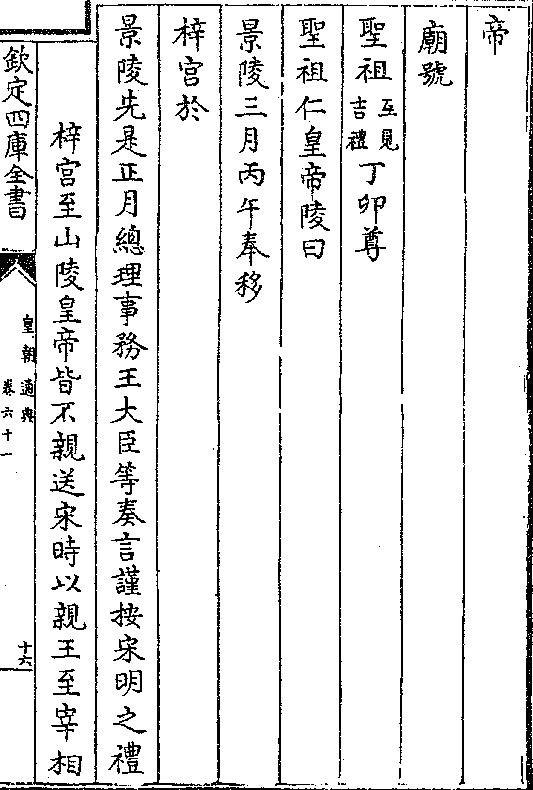 帝
廟號
聖祖互見吉禮丁卯尊
聖祖仁皇帝陵曰
景陵三月丙午奉移
梓宮於
景陵先是正月總理事務王大臣等奏言謹按宋明之禮
梓宮至山陵皇帝皆不親送宋時以親王至宰相
欽定四庫全書
皇朝通典
卷六十一
十六